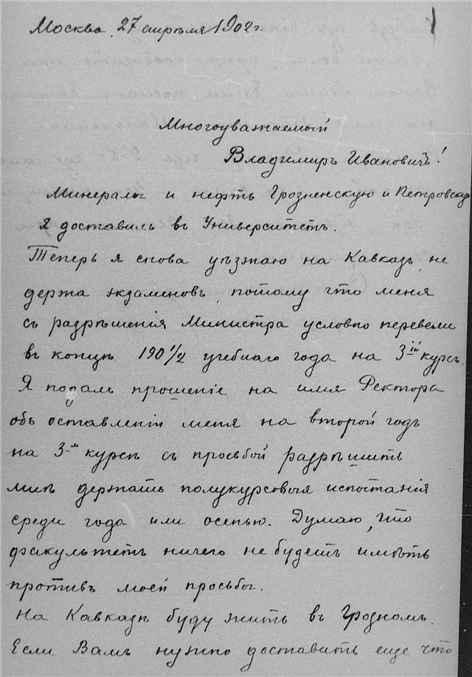 Москва, 27 апрѣля 1902 г.
1
Многоуважаемый
Владимиръ Ивановичъ!
Минералы и нефть Грозненскую и Петровскую
я доставилъ въ Университетъ.
Теперь я снова уѣзжаю на Кавказъ, не
держа экзаменовъ, потому что меня
съ разрѣшенія Министра условно перевели
въ концѣ 190½ учебнаго года на 3-ій курсъ.
Я подалъ прошеніе на имя Ректора
объ оставленіи меня на второй годъ
на 3-мъ курсѣ съ просьбой разрѣшить
мнѣ держать полукурсовыя испытанія
среди года или осенью. Думаю, что
факультетъ ничего не будетъ имѣть
противъ моей просьбы.
На Кавказѣ буду жить въ Грозномъ.
Если Вамъ нужно доставить еще что